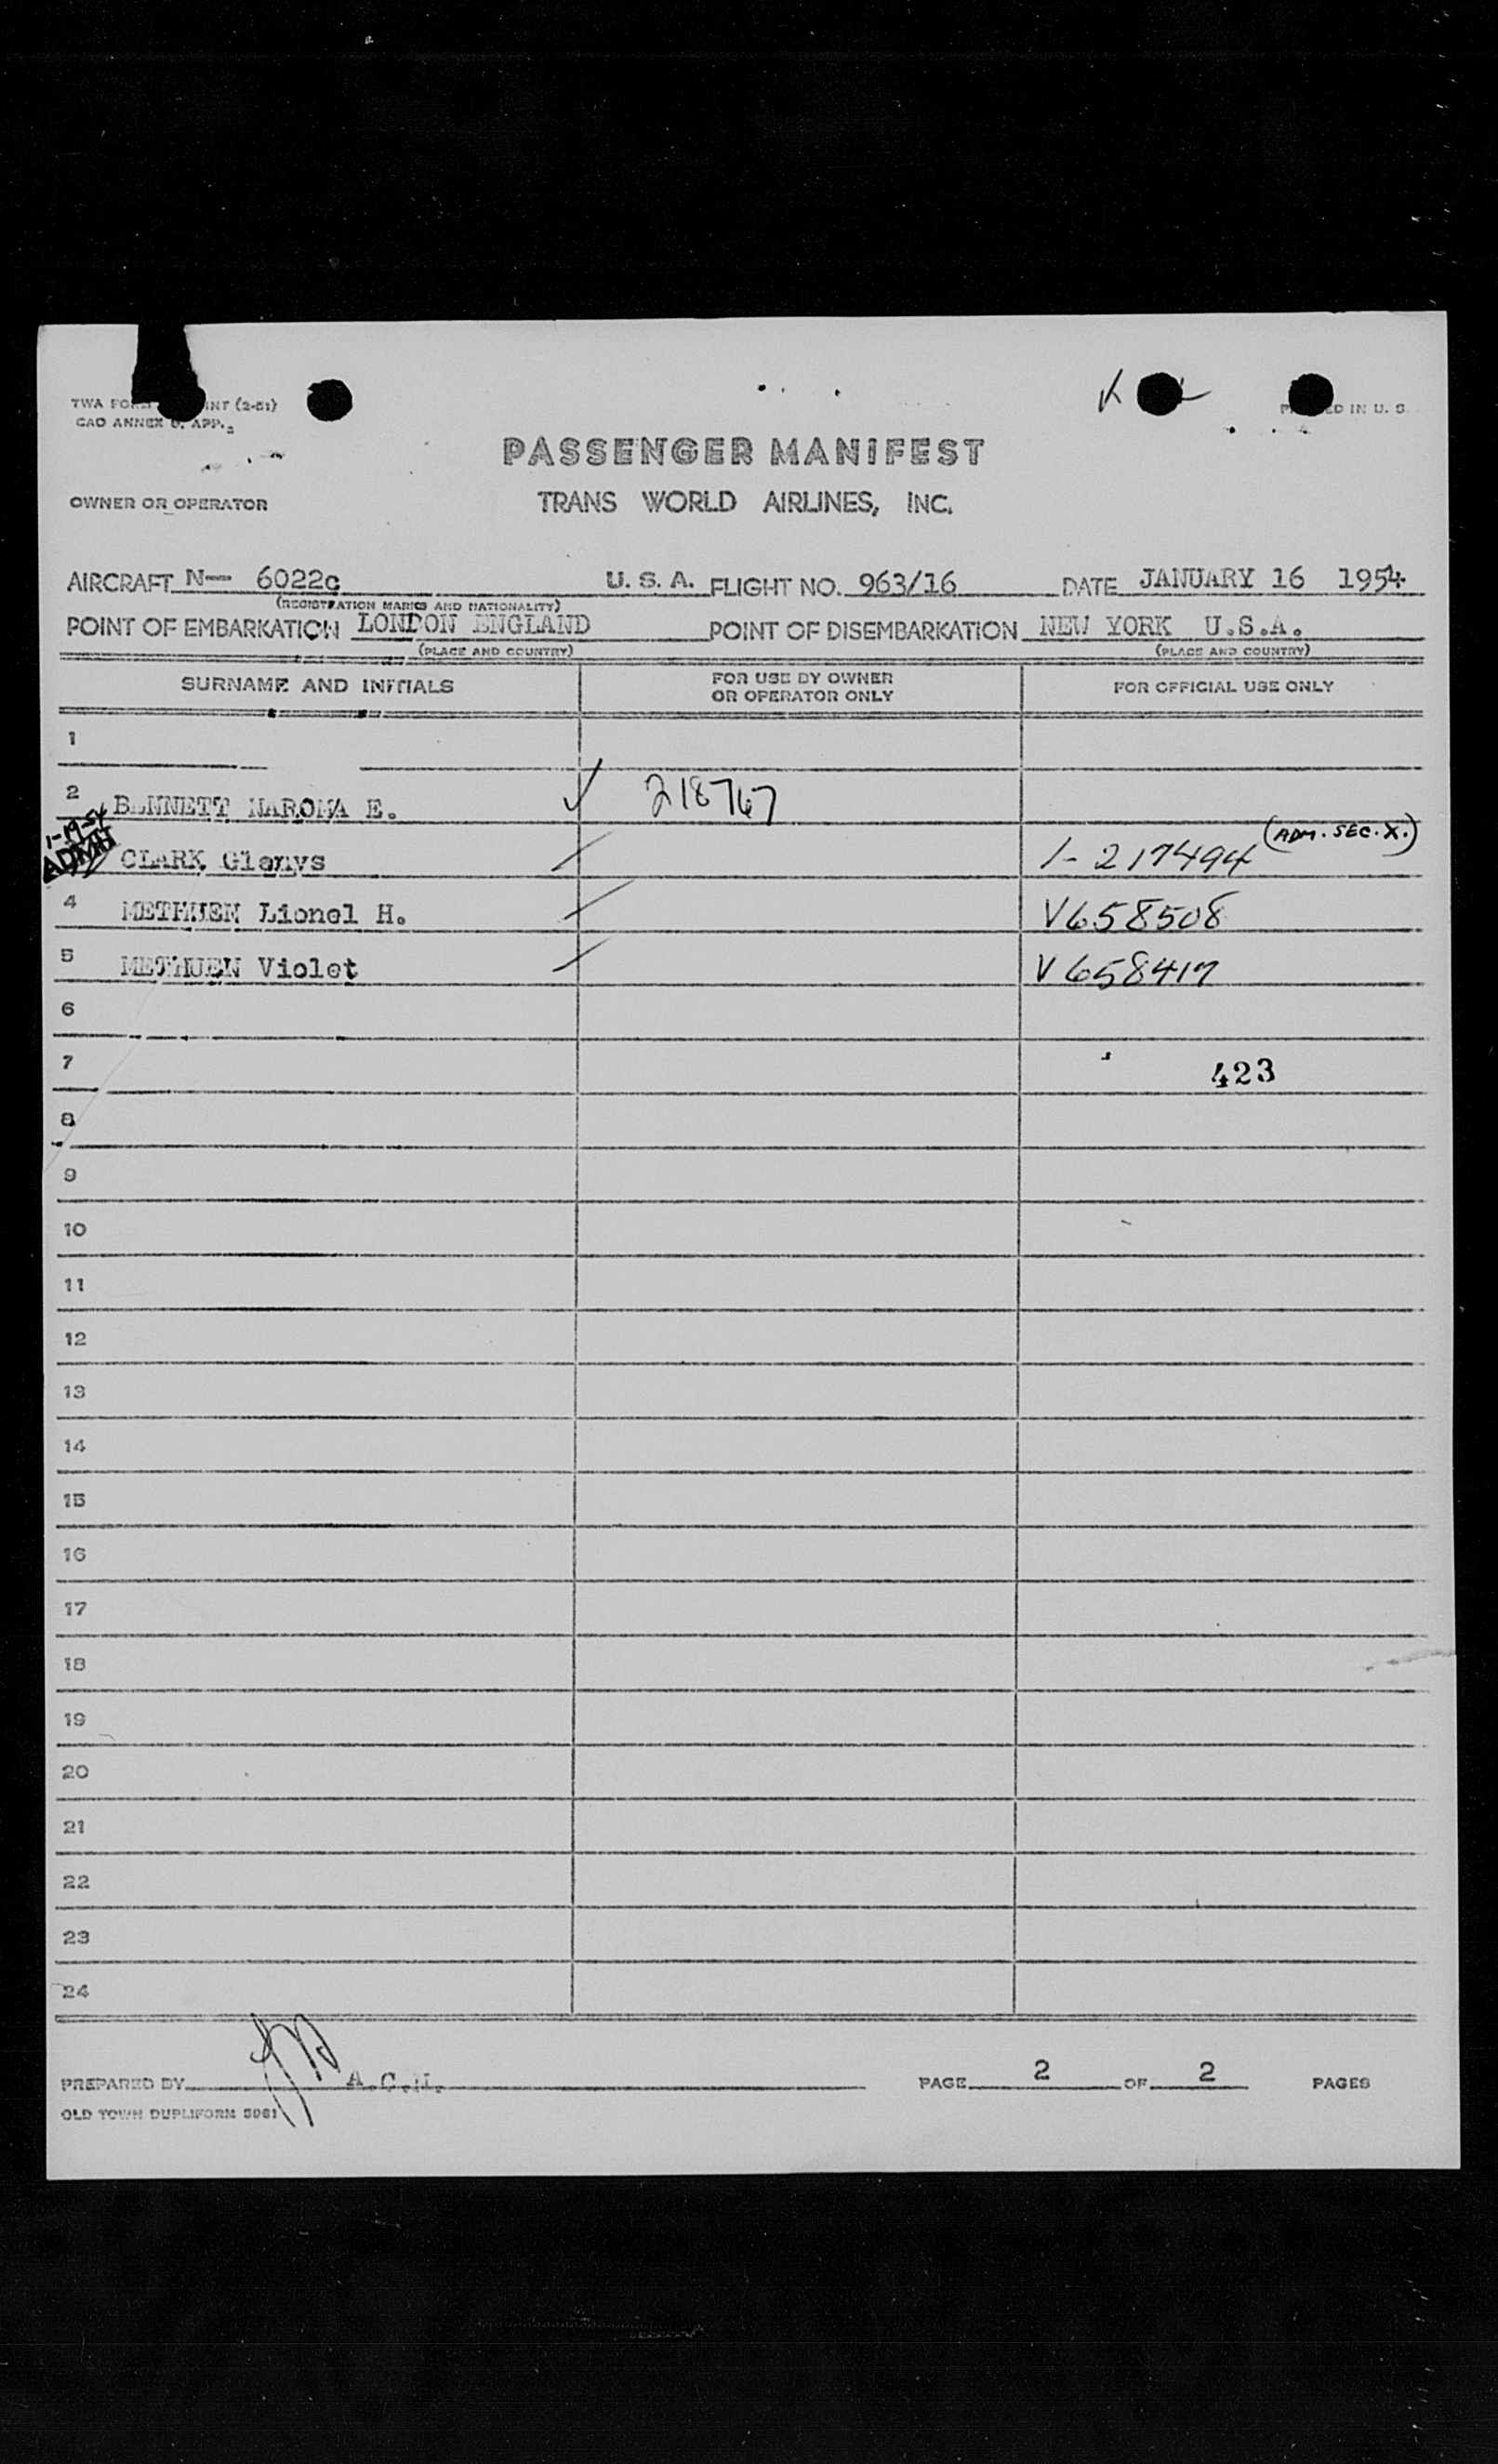 TWA FORM INT (2-51)
CAO ANNEX 9, APP. 2
PRINTED IN U. S.
PASSENGER MANIFEST
OWNER OR OPERATOR
TRANS WORLD AIRLINES, INC.
AIRCRAFT N-- 6022c U. S. A. FLIGHT NO. 963/16 DATE JANUARY 16 1954
(REGISTRATION MARKS AND NATIONALITY)
POINT OF EMBARKATION LONDON ENGLAND POINT OF DISEMBARKATION NEW YORK U.S.A.
(PLACE AND COUNTRY) (PLACE AND COUNTRY)
SURNAME AND INITIALS FOR USE BY OWNER OR OPERATOR ONLY FOR OFFICIAL USE ONLY
1
2 BENNETT NAROMA E. ✓ 218767
1-19-54
ADMH CLARK Glenys 1-217494 (ADM. SEC. X.)
4 METHUEN Lionel H. V658508
5 METHUEN Violet V658417
6
7 423
8
9
10
11
12
13
14
15
16
17
18
19
20
21
22
23
24
PREPARED BY A.C.H. PAGE 2 OF 2 PAGES
OLD TOWN DUPLIFORM 5981